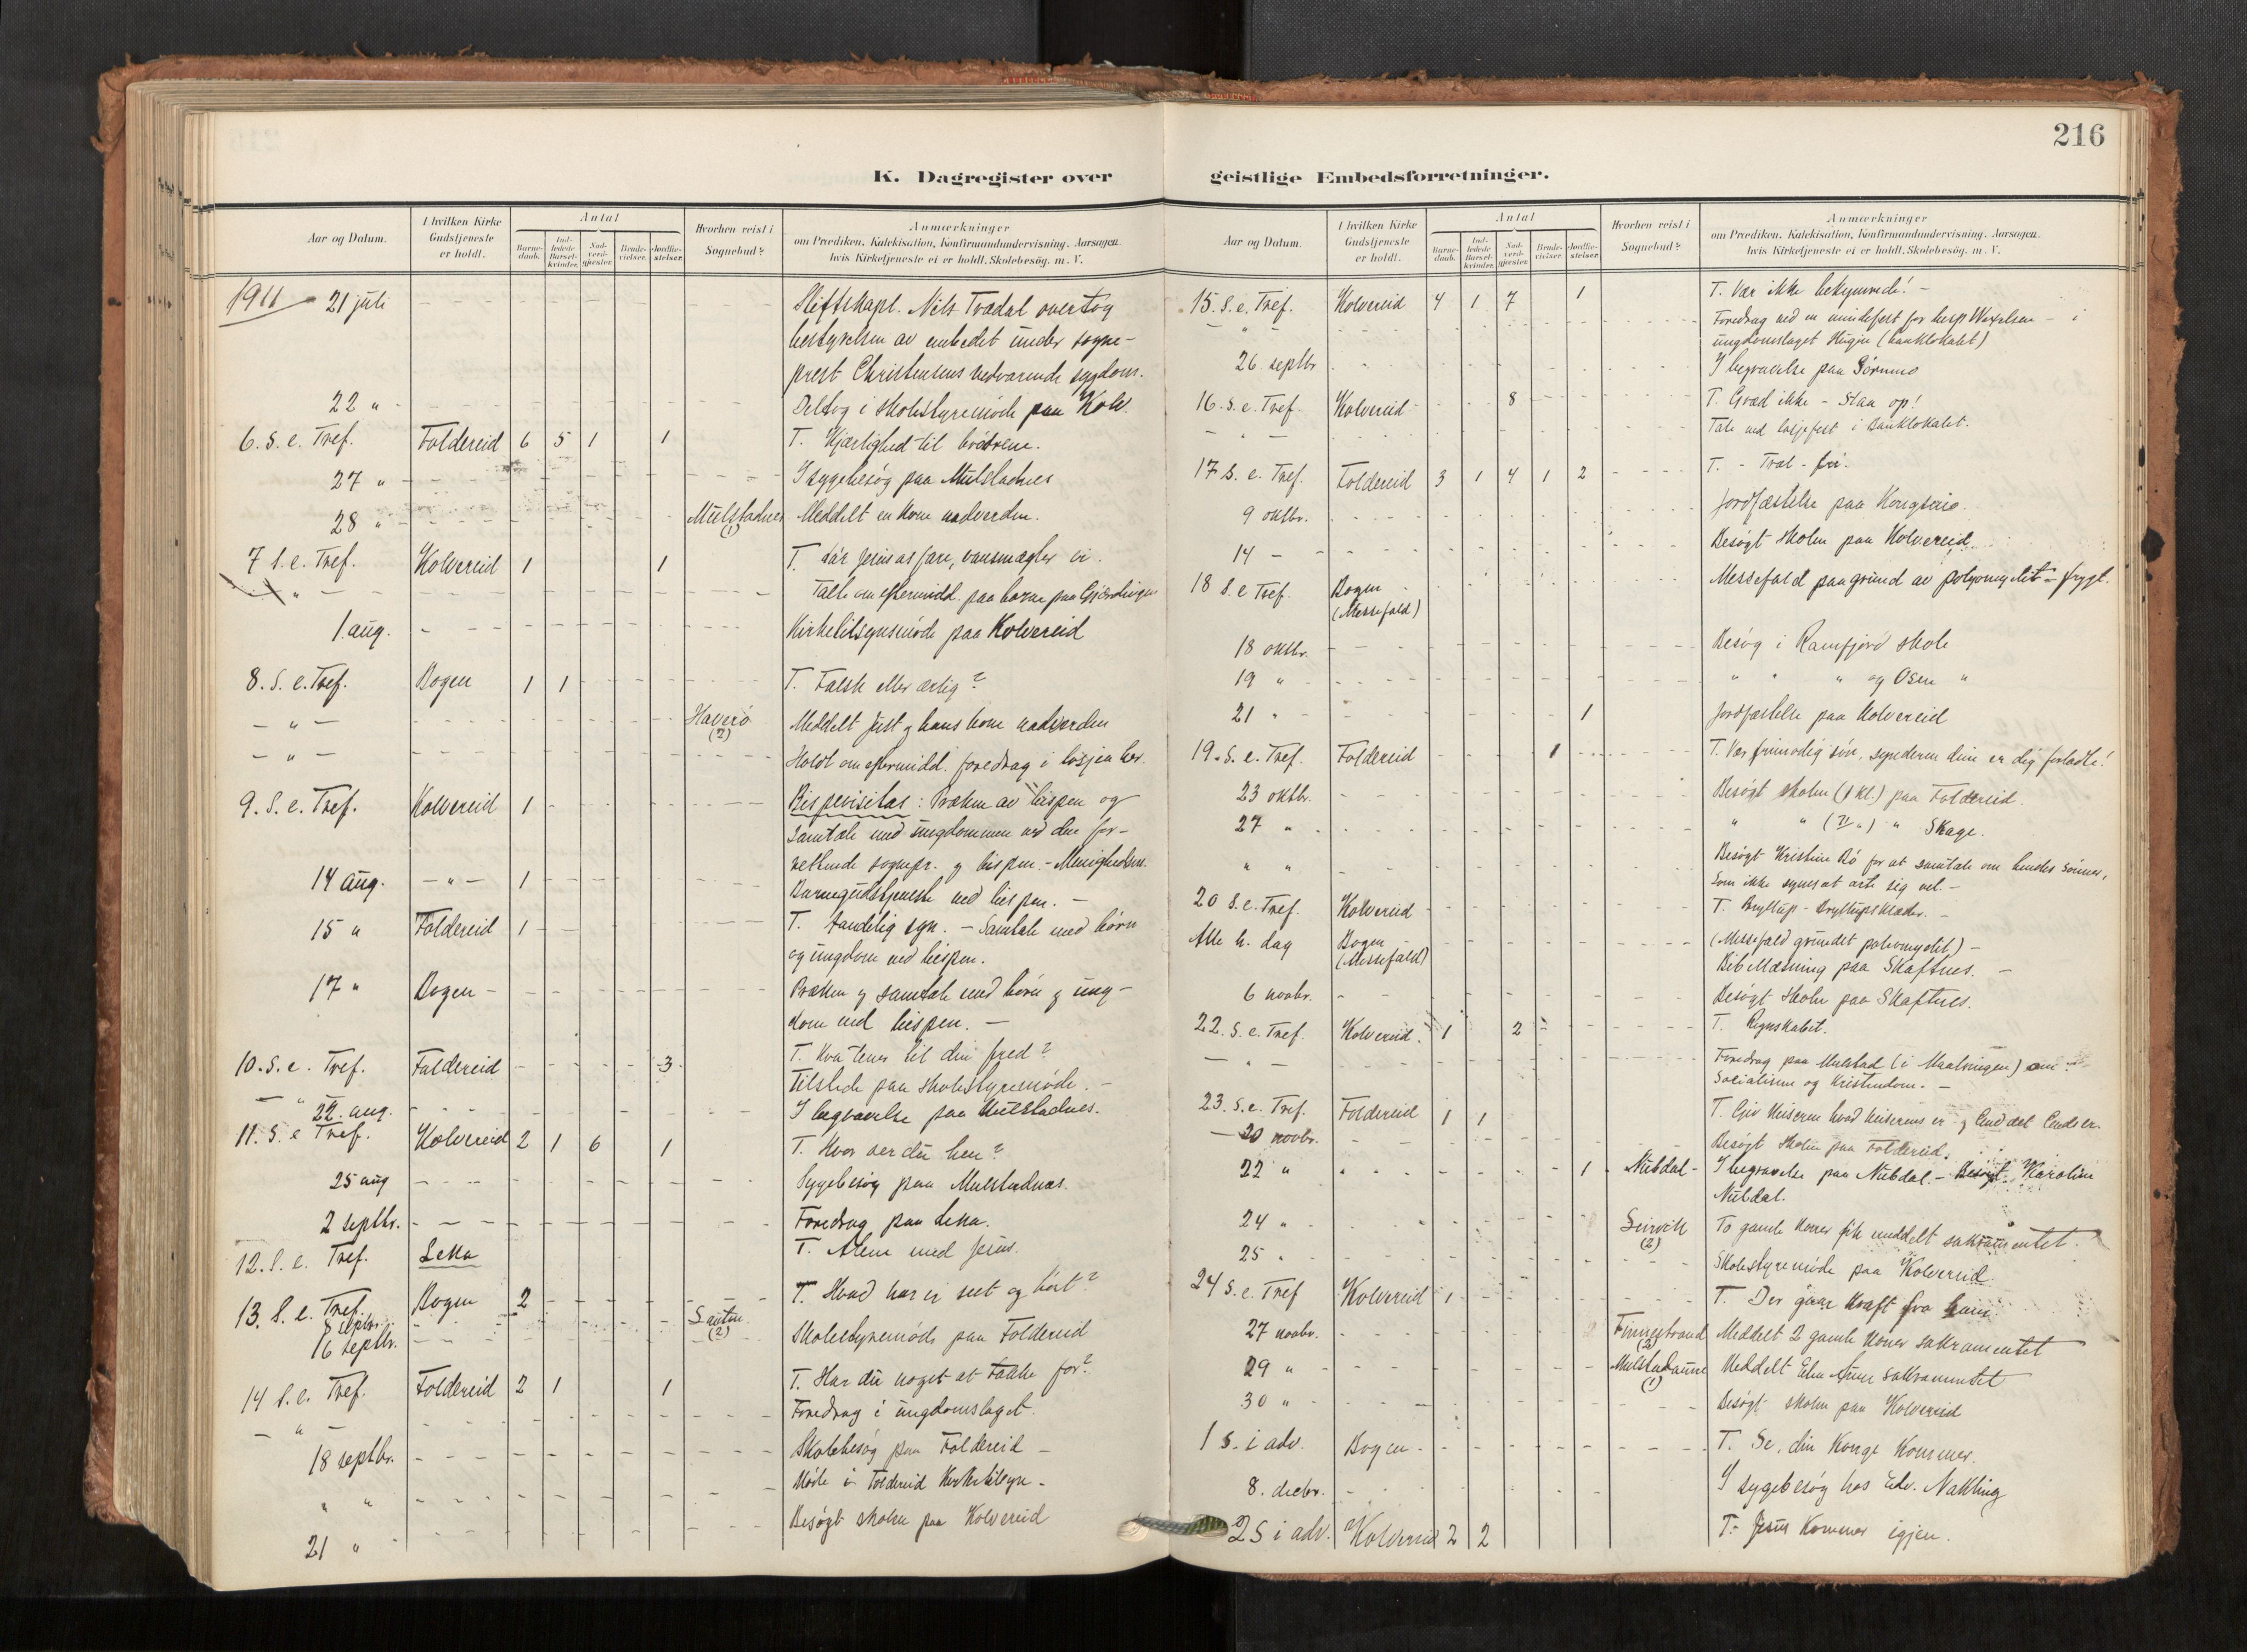 216
K. Dagregister over geistlige Embedsforretninger.
Aar og Datum.
I hvilken Kirke Gudstjeneste er holdt.
Antal
Barnedaab.
Indledede Barselkvinder.
Nadverdgjæster.
Brudevielser.
Jordfæstelser.
Hvorhen reist i Sognebud?
Anmærkninger
om Prædiken, Katekisation, Konfirmandundervisning. Aarsagen hvis Kirketjeneste ei er holdt. Skolebesøg. m. V.
1911 21 juli Stiftskapl. Nils Tvedal overtog
bestyrelsen av embedet under sogne-
prest Christensens vedvarende sygdom.
22 " Deltog i skolestyremöde paa Kolv.
6. S. e. Tref. Foldereid 6 5 1 1 T. Kjærlighed til brödrene.
27 " I sygebesög paa Mulstadnes
28 " Mulstadnes (1) Meddelt en kone nadverden.
7 S. e. Tref. Kolvereid 1 1 T. Lar Jesus os fare, vansmægter vi.
- " - Talte om eftermidd. paa Gjerdingen
1. aug. Kirketilsynsmöde paa Kolvereid
8. S. e. Tref. Bogen 1 1 T. Falsk eller ærlig?
- " - Haverö (2) Meddelt Just og hans kone nadverden
- " - Holdt om eftermidd. foredrag i losjen her.
9. S. e. Tref. Kolvereid 1 Bispevisitas: Præken av bispen og
Samtale med ungdommen ved den for-
rettende sognepr. og bispen. - Menighedsm.
14 aug. - " - 1 Barnegudstjeneste ved bispen. -
15 " Foldereid 1 T. Aandelig syn. - Samtale med börn
og ungdom ved bispen.
17 " Bogen Præken og samtale med börn og ung-
dom ved bispen. -
10. S. e. Tref. Foldereid 3 T. Kva tener til din fred?
- " - Tilstede paa skolestyremöde. -
22. aug. I begravelse paa Mulstadnes.
11. S. e. Tref. Kolvereid 2 1 6 1 T. Hvor ser du hen?
25 aug Sygebesög paa Mulstadnes.
2 septbr. Foredrag paa Leka.
12. S. e. Tref. Leka T. Alene med Jesus.
13. S. e. Tref. Bogen 2 T. Hvad har vi seet og hört?
8 septbr. (2)
16 septbr. Skolestyremöde paa Foldereid
14 S. e. Tref. Foldereid 2 1 1 T. Har du noget at takke for?
- " - Foredrag i ungdomslaget.
18 septbr. Skolebesög paa Foldereid -
" " Möte i Foldereid Kirketilsyn -
21 " Besögt skolen paa Kolvereid
15. S. e. Tref. Kolvereid 4 1 7 1 T. Vær ikke bekymrede! -
- " - Foredrag ved en mindefest for bisp Wexelsen - i
ungdomslaget Hugin (banklokalet)
26 septbr I begravelse paa
16. S. e. Tref Kolvereid 8 T. Græd ikke - Staa op!
- " - Tale ved losjefest i Banklokalet.
17 S. e. Tref. Foldereid 3 1 4 1 2 T. - Træl - fri.
9 oktbr. Jordfæstelse paa Kongsmo.
14 - Besögt skolen paa Kolvereid.
18 S. e. Tref. Bogen (Messefald) Messefald paagrund av polyomyelit - frygt.
18 oktbr. Besög i Ramfjord skole
19 " " " " og Osen "
21 " 1 Jordfæstelse paa Kolvereid
19. S. e. Tref. Foldereid 1 T. Vær frimodig sön, synderne dine er dig forladte!
23 oktbr. Besögt skolen (I kl.) paa Foldereid.
27 " " " (II ") " Skage.
" " Besögt Kristine Bö for at samtale om hendes sönner,
som ikke synes at arte sig vel. -
20 S. e. Tref. Kolvereid T. Bryllup - Bryllupsklæder. -
Alle h. dag Bogen (Messefald) (Messefald grundet poliomyelit) -
Bibellæsning paa Skaftnes. -
6 novbr. Besögt skolen paa Skaftnes.
22. S. e. Tref. Kolvereid. 1 2 T. Regnskabet.
- " - Foredrag paa Mulstad (i Maalningen) om
Socialisme og Kristendom. -
23. S. e. Tref. Foldereid 1 1 T. Giv keiseren hvad keiserens er og Gud det Guds er.
20 novbr. Besögt skolen paa Foldereid.
22 " 1 Nubdal - I begravelse paa Nubdal. - Besögt Karoline
Nubdal.
24 " (2) To gamle koner fik meddelt sakramentet.
25 " Skolestyremöde paa Kolvereid.
24 S. e. Tref Kolvereid 1 T. Der gaar kraft fra ham
27 novbr. Finnestrand (2) Meddelt 2 gamle koner sakramentet
29 " Mulstadaune (1) Meddelt Elen Aune sakramentet
30 " Besögt skolen paa Kolvereid
1 S. i adv. Bogen T. Se, din Konge kommer.
8. decbr. I sygebesög hos Edv. Nakling
2 S i adv. Kolvereid 2 2 T. - Jesus kommer igjen.